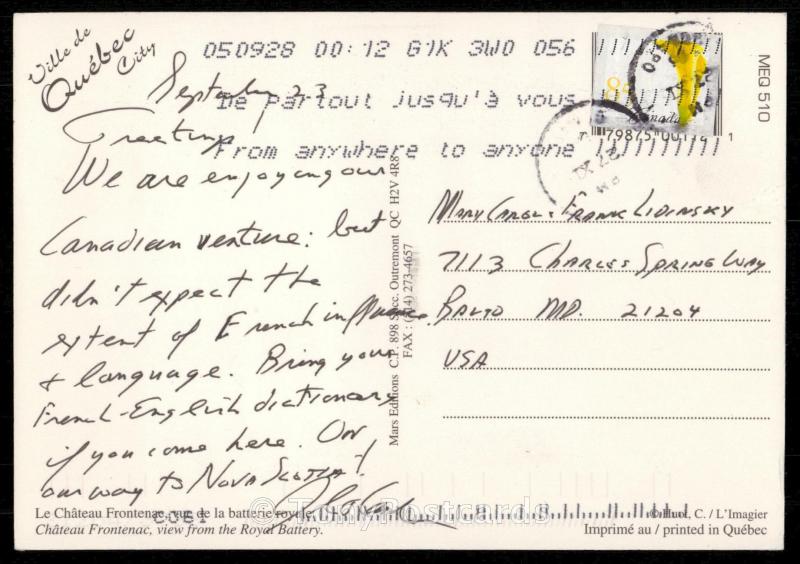 Ville de
Québec
City
050928 00:12 G1K 3W0 056
De partout jusqu'à vous
From anywhere to anyone
Canada
MEQ 510
September 23
Greetings!
We are enjoying our
Canadian venture: but
didn't expect the
extent of French influence
& language. Bring your
French-English dictionary
if you come here. On
our way to Nova Scotia!
Mars Editions C.P. 898 Succ. Outremont QC H2V 4R8
FAX : (514) 273-4657
Mary Carol & Frank Lidinsky
7113 Charles Spring Way
Balto MD. 21204
USA
Le Château Frontenac, vue de la batterie royale.
Château Frontenac, view from the Royal Battery.
© Huot, C. / L'Imagier
Imprimé au / printed in Québec